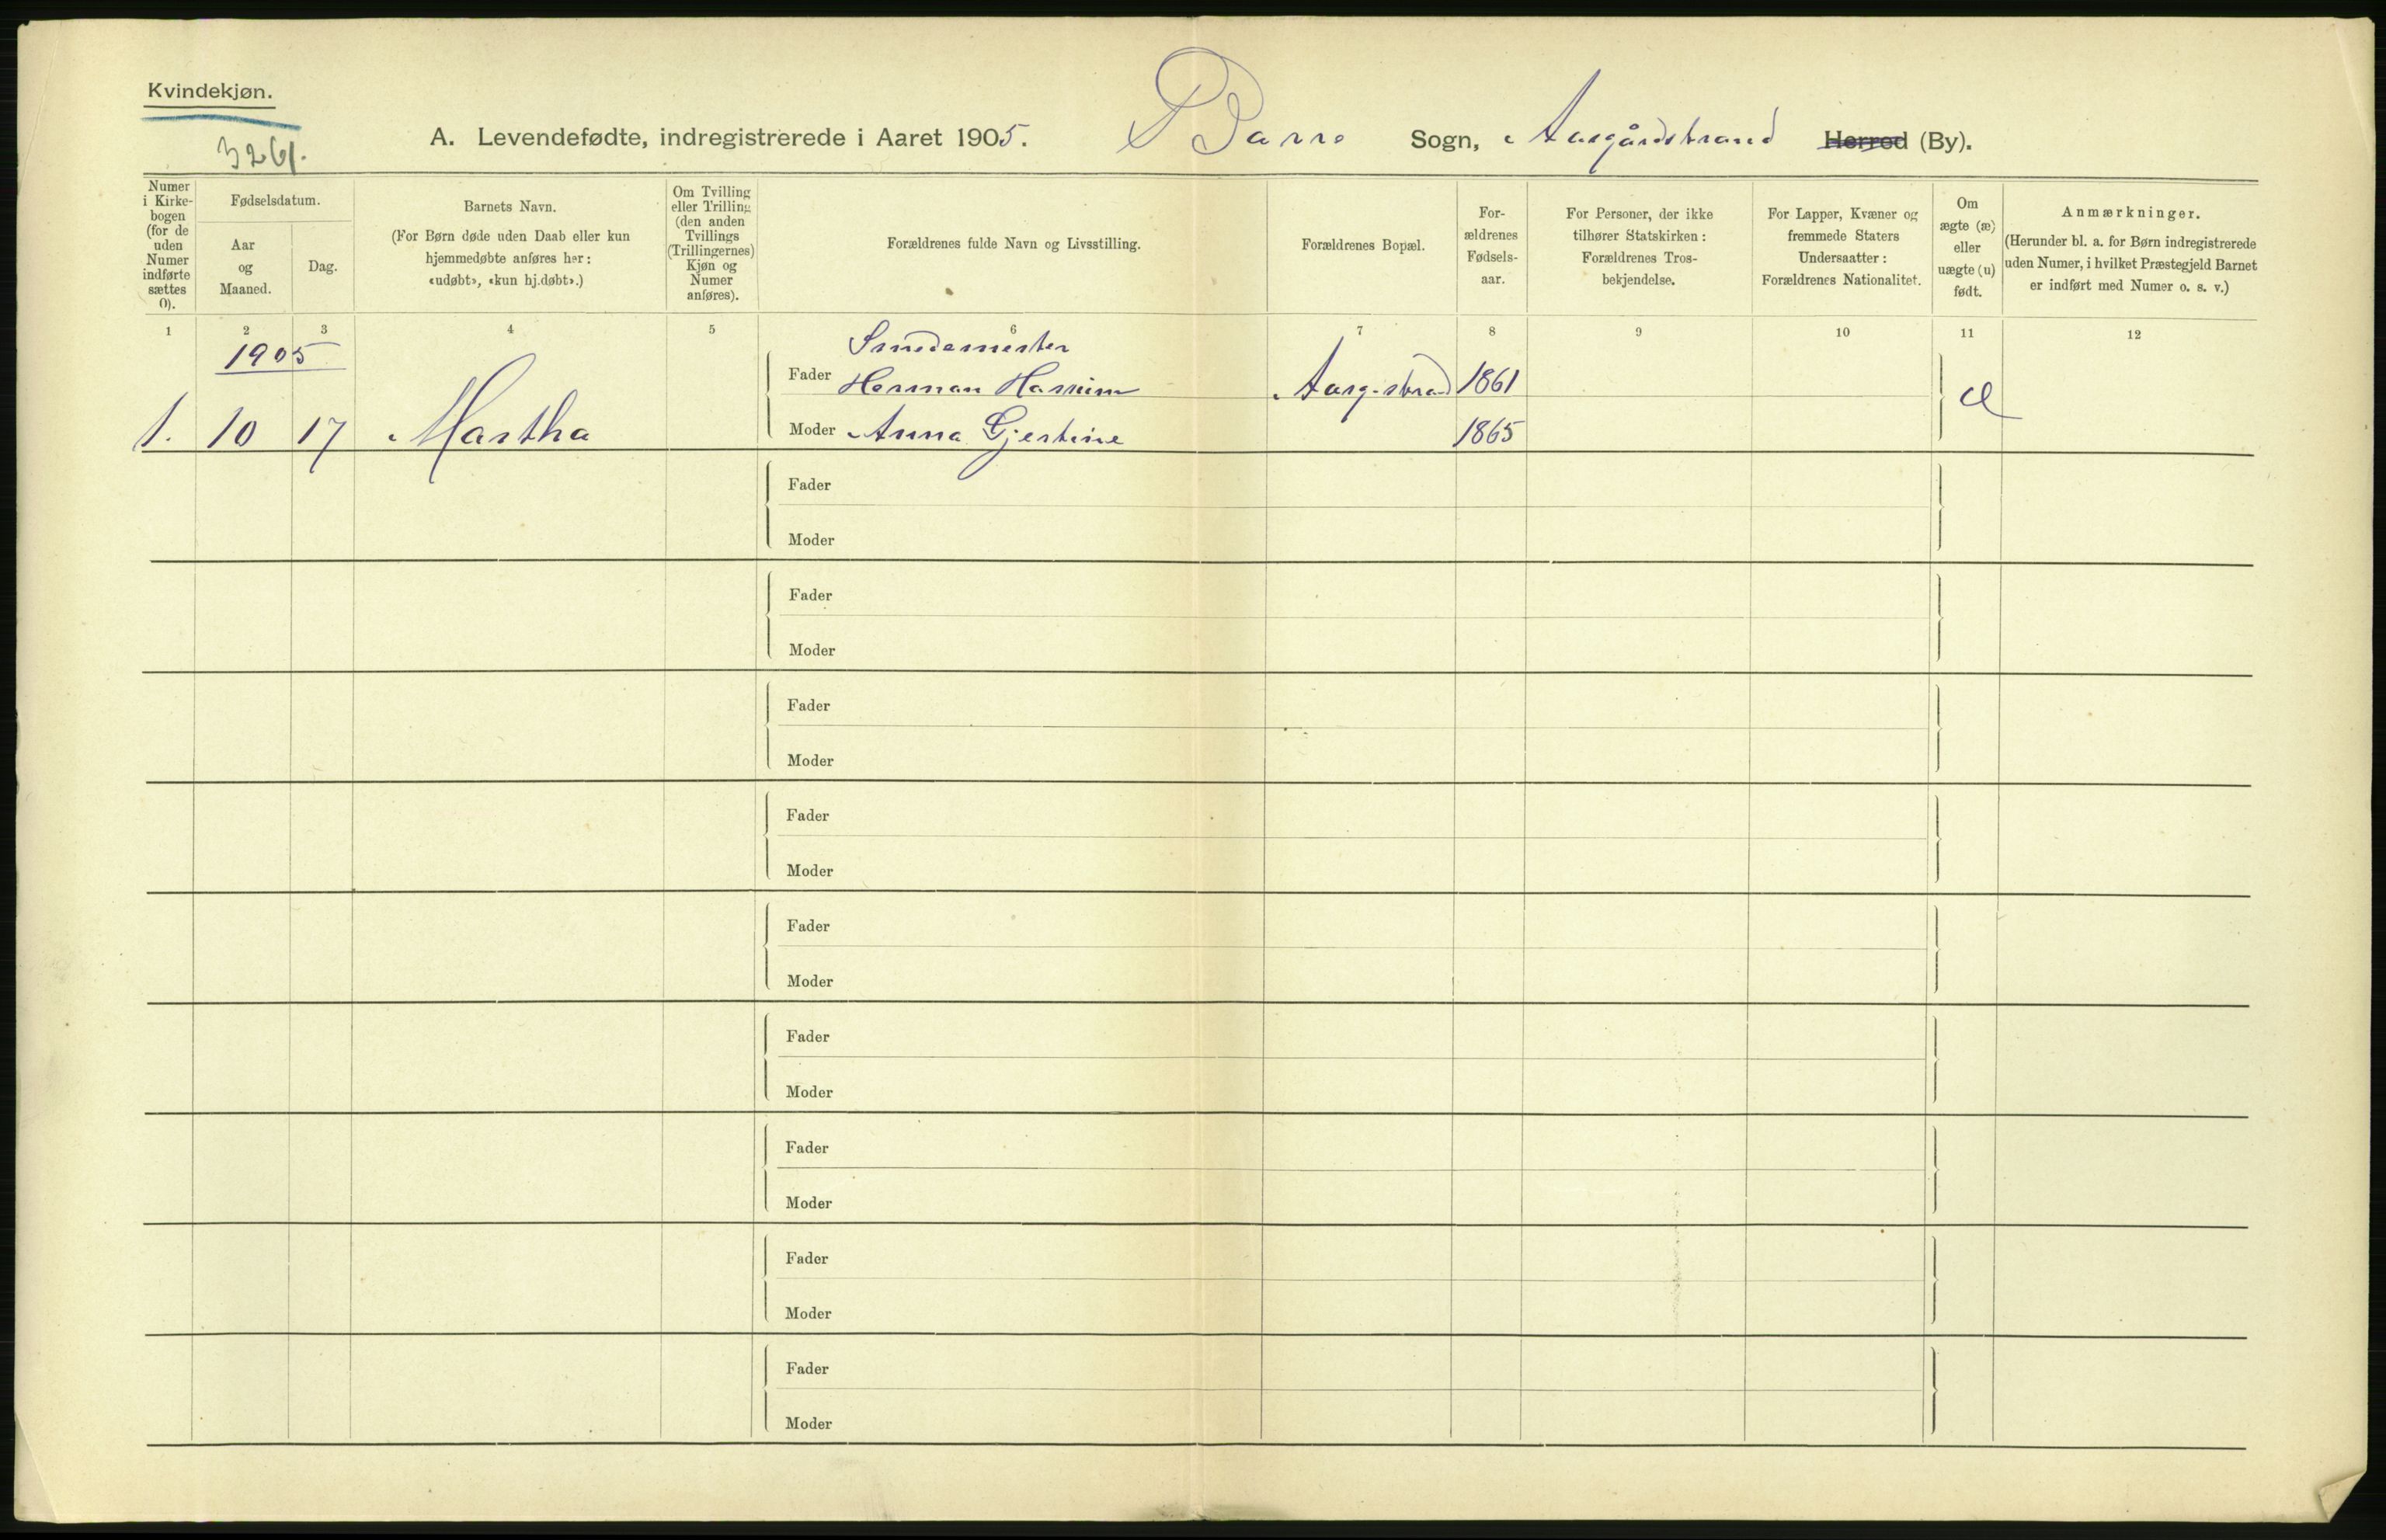 Kvindekjøn.
3261.
A. Levendefødte, indregistrerede i Aaret 1905. Borre Sogn, Aasgårdstrand Herred (By).
Numer i Kirkebogen (for de uden Numer indførte sættes 0).
Fødselsdatum.
Aar og Maaned.
Dag.
Barnets Navn.
(For Børn døde uden Daab eller kun
hjemmedøbte anføres her:
«udøbt», «kun hj.døbt».)
Om Tvilling
eller Trilling
(den anden
Tvillings
(Trillingernes)
Kjøn og
Numer
anføres).
Forældrenes fulde Navn og Livsstilling.
Forældrenes Bopæl.
For-
ældrenes
Fødsels-
aar.
For Personer, der ikke
tilhører Statskirken:
Forældrenes Tros-
bekjendelse.
For Lapper, Kvæner og
fremmede Staters
Undersaatter:
Forældrenes Nationalitet.
Om
ægte (æ)
eller
uægte (u)
født.
Anmærkninger.
(Herunder bl. a. for Børn indregistrerede
uden Numer, i hvilket Præstegjeld Barnet
er indført med Numer o. s. v.)
1 2 3 4 5 6 7 8 9 10 11 12
1905
Smedemester
Fader Herman 1861
1. 10 17 Martha Moder Anna Gjertine 1865 æ
Fader
Moder
Fader
Moder
Fader
Moder
Fader
Moder
Fader
Moder
Fader
Moder
Fader
Moder
Fader
Moder
Fader
Moder